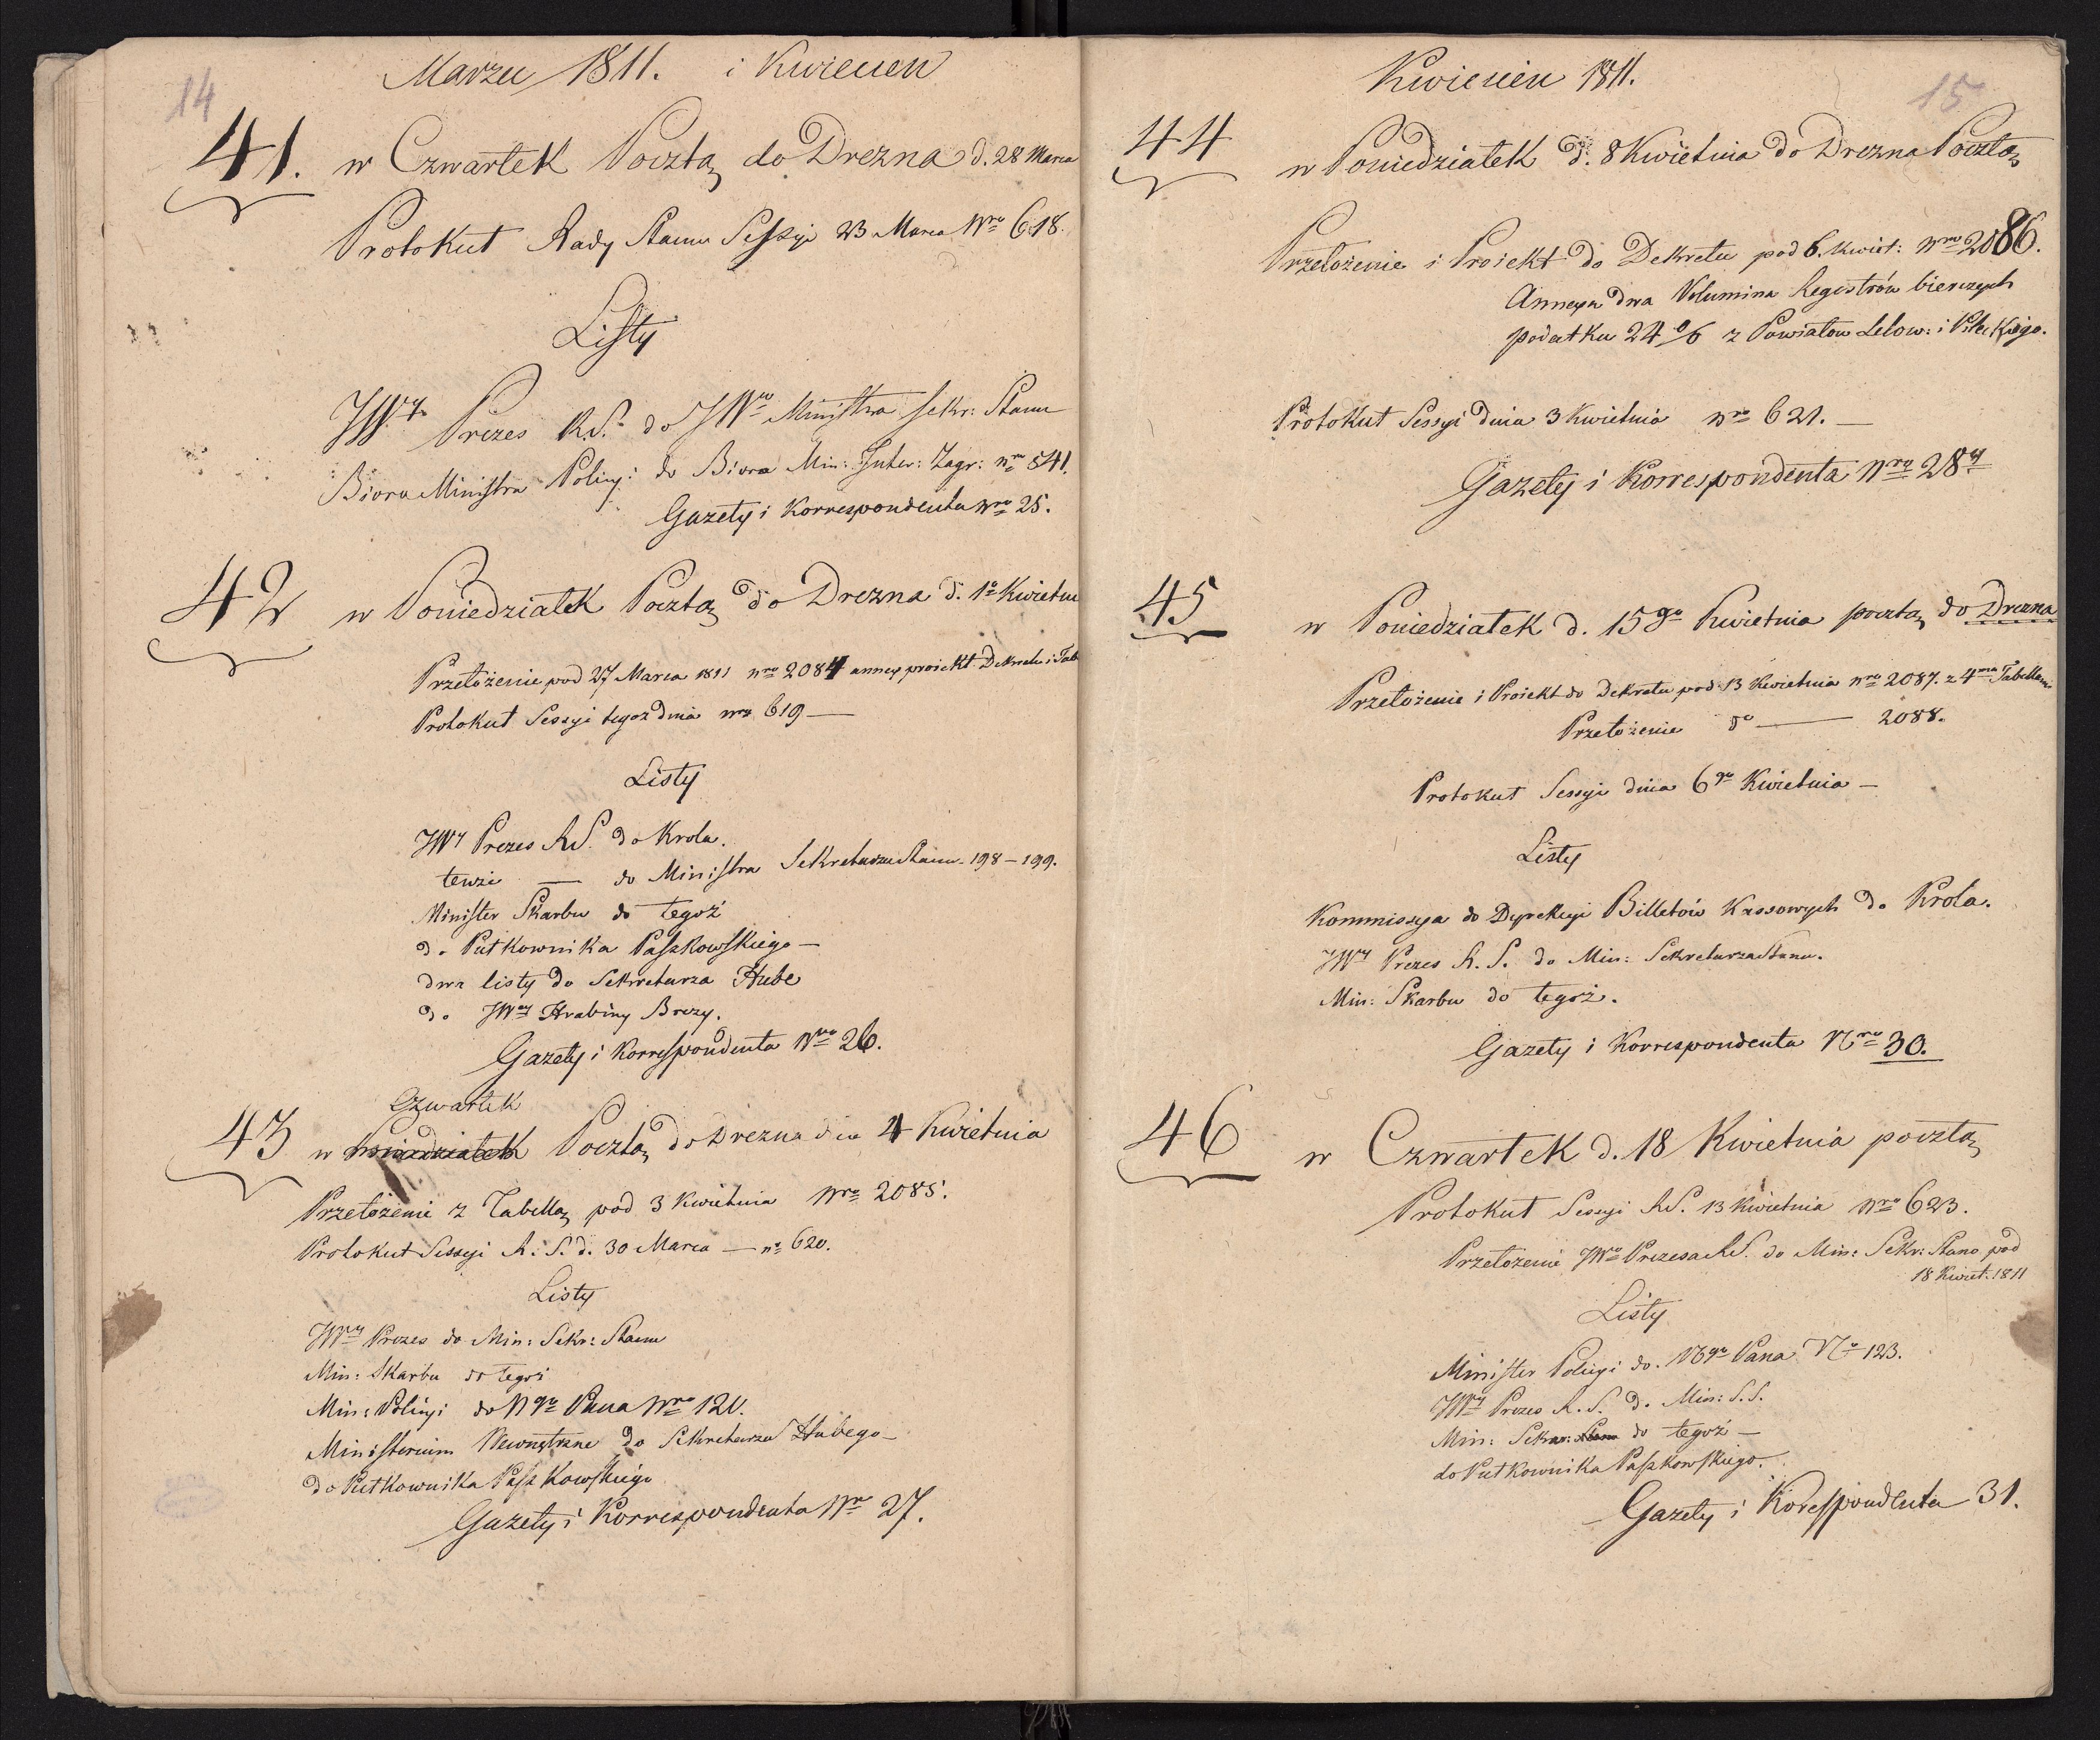 14
Marzec 1811. i Kwiecień
41. w Czwartek Pocztą do Drezna d. 28 Marca
Protokuł Rady Stanu Sessyi 23 Marca Nro 618.
Listy
JWy Prezes R.S. do JWo Ministra Sekr: Stanu
Biora Ministra Policyi do Biora Min: Inter: Zagr: nro 541.
Gazety i Korrespondenta nro 25.
42 w Poniedziałek Pocztą do Drezna d. 1o Kwietn
Przełożenie pod 27 Marca 1811 nro 2084 annex proiekt Dekretu i Tab
Protokuł Sessyi tegoż dnia nro 619 —
Listy
JWy Prezes R.S. do Krola.
tenże — do Ministra Sekretarza Stanu. 198 – 199.
Minister Skarbu do tegoż
do Pułkownika Paszkowskiego —
dwa listy do Sekretarza Hube
do JWey Hrabiny Brezy.
Gazety i Korrespondenta Nro 26.
Czwartek
43 w Poniedziałek Pocztą do Drezna dnia 4 Kwietnia
Przełożenie z Tabellą pod 3 Kwietnia Nro 2085.
Protokuł Sessyi R. S. d. 30 Marca — no 620.
Listy
JWy Prezes do Min: Sekr: Stanu
Min: Skarbu do tegoż
Min: Policyi do Ngo Pana Nro 120.
Ministerium Wewnętrzne do Sekretarza Hubego —
do Pułkownika Paszkowskiego
Gazety i Korrespondenta Nro 27.
15
Kwiecień 1811.
44
w Poniedziałek d. 8 Kwietnia do Drezna Pocztą
Przełożenie i Proiekt do Dekretu pod 6. Kwiet: Nro 2086.
Annexa dwa Volumina Regestrów bierczych
podatku 24 % z Powiatow Lelow: i Pileckiego.
Protokuł Sessyi dnia 3 Kwietnia nro 621. —
Gazety i Korrespondenta Nro 28y
45
w Poniedziałek d. 15go Kwietnia pocztą do Drezna
Przełożenie i Proiekt do Dekretu pod 13 Kwietnia nro 2087. z 4ma Tabellami
Przełożenie do — 2088.
Protokuł Sessyi dnia 6go Kwietnia —
Listy
Kommissya do Dyrekcyi Billetów Kassowych do Krola.
JWy Prezes R. S. do Min: Sekretarza Stanu.
Min: Skarbu do tegoż.
Gazety i Korrespondenta Nro 30.
46
w Czwartek d. 18 Kwietnia pocztą
Protokuł Sessyi RS. 13 Kwietnia Nro 623.
Przełożenie JWo Prezesa RS. do Min: Sekr: Stanu pod
18 Kwiet. 1811
Listy
Minister Policyi do. Ngo Pana No 123.
JWy Prezes R. S. do Min: S.S.
Min: Sekr: Stanu do tegoż —
do Pułkownika Paszkowskiego.
Gazety i Koresspondenta 31.